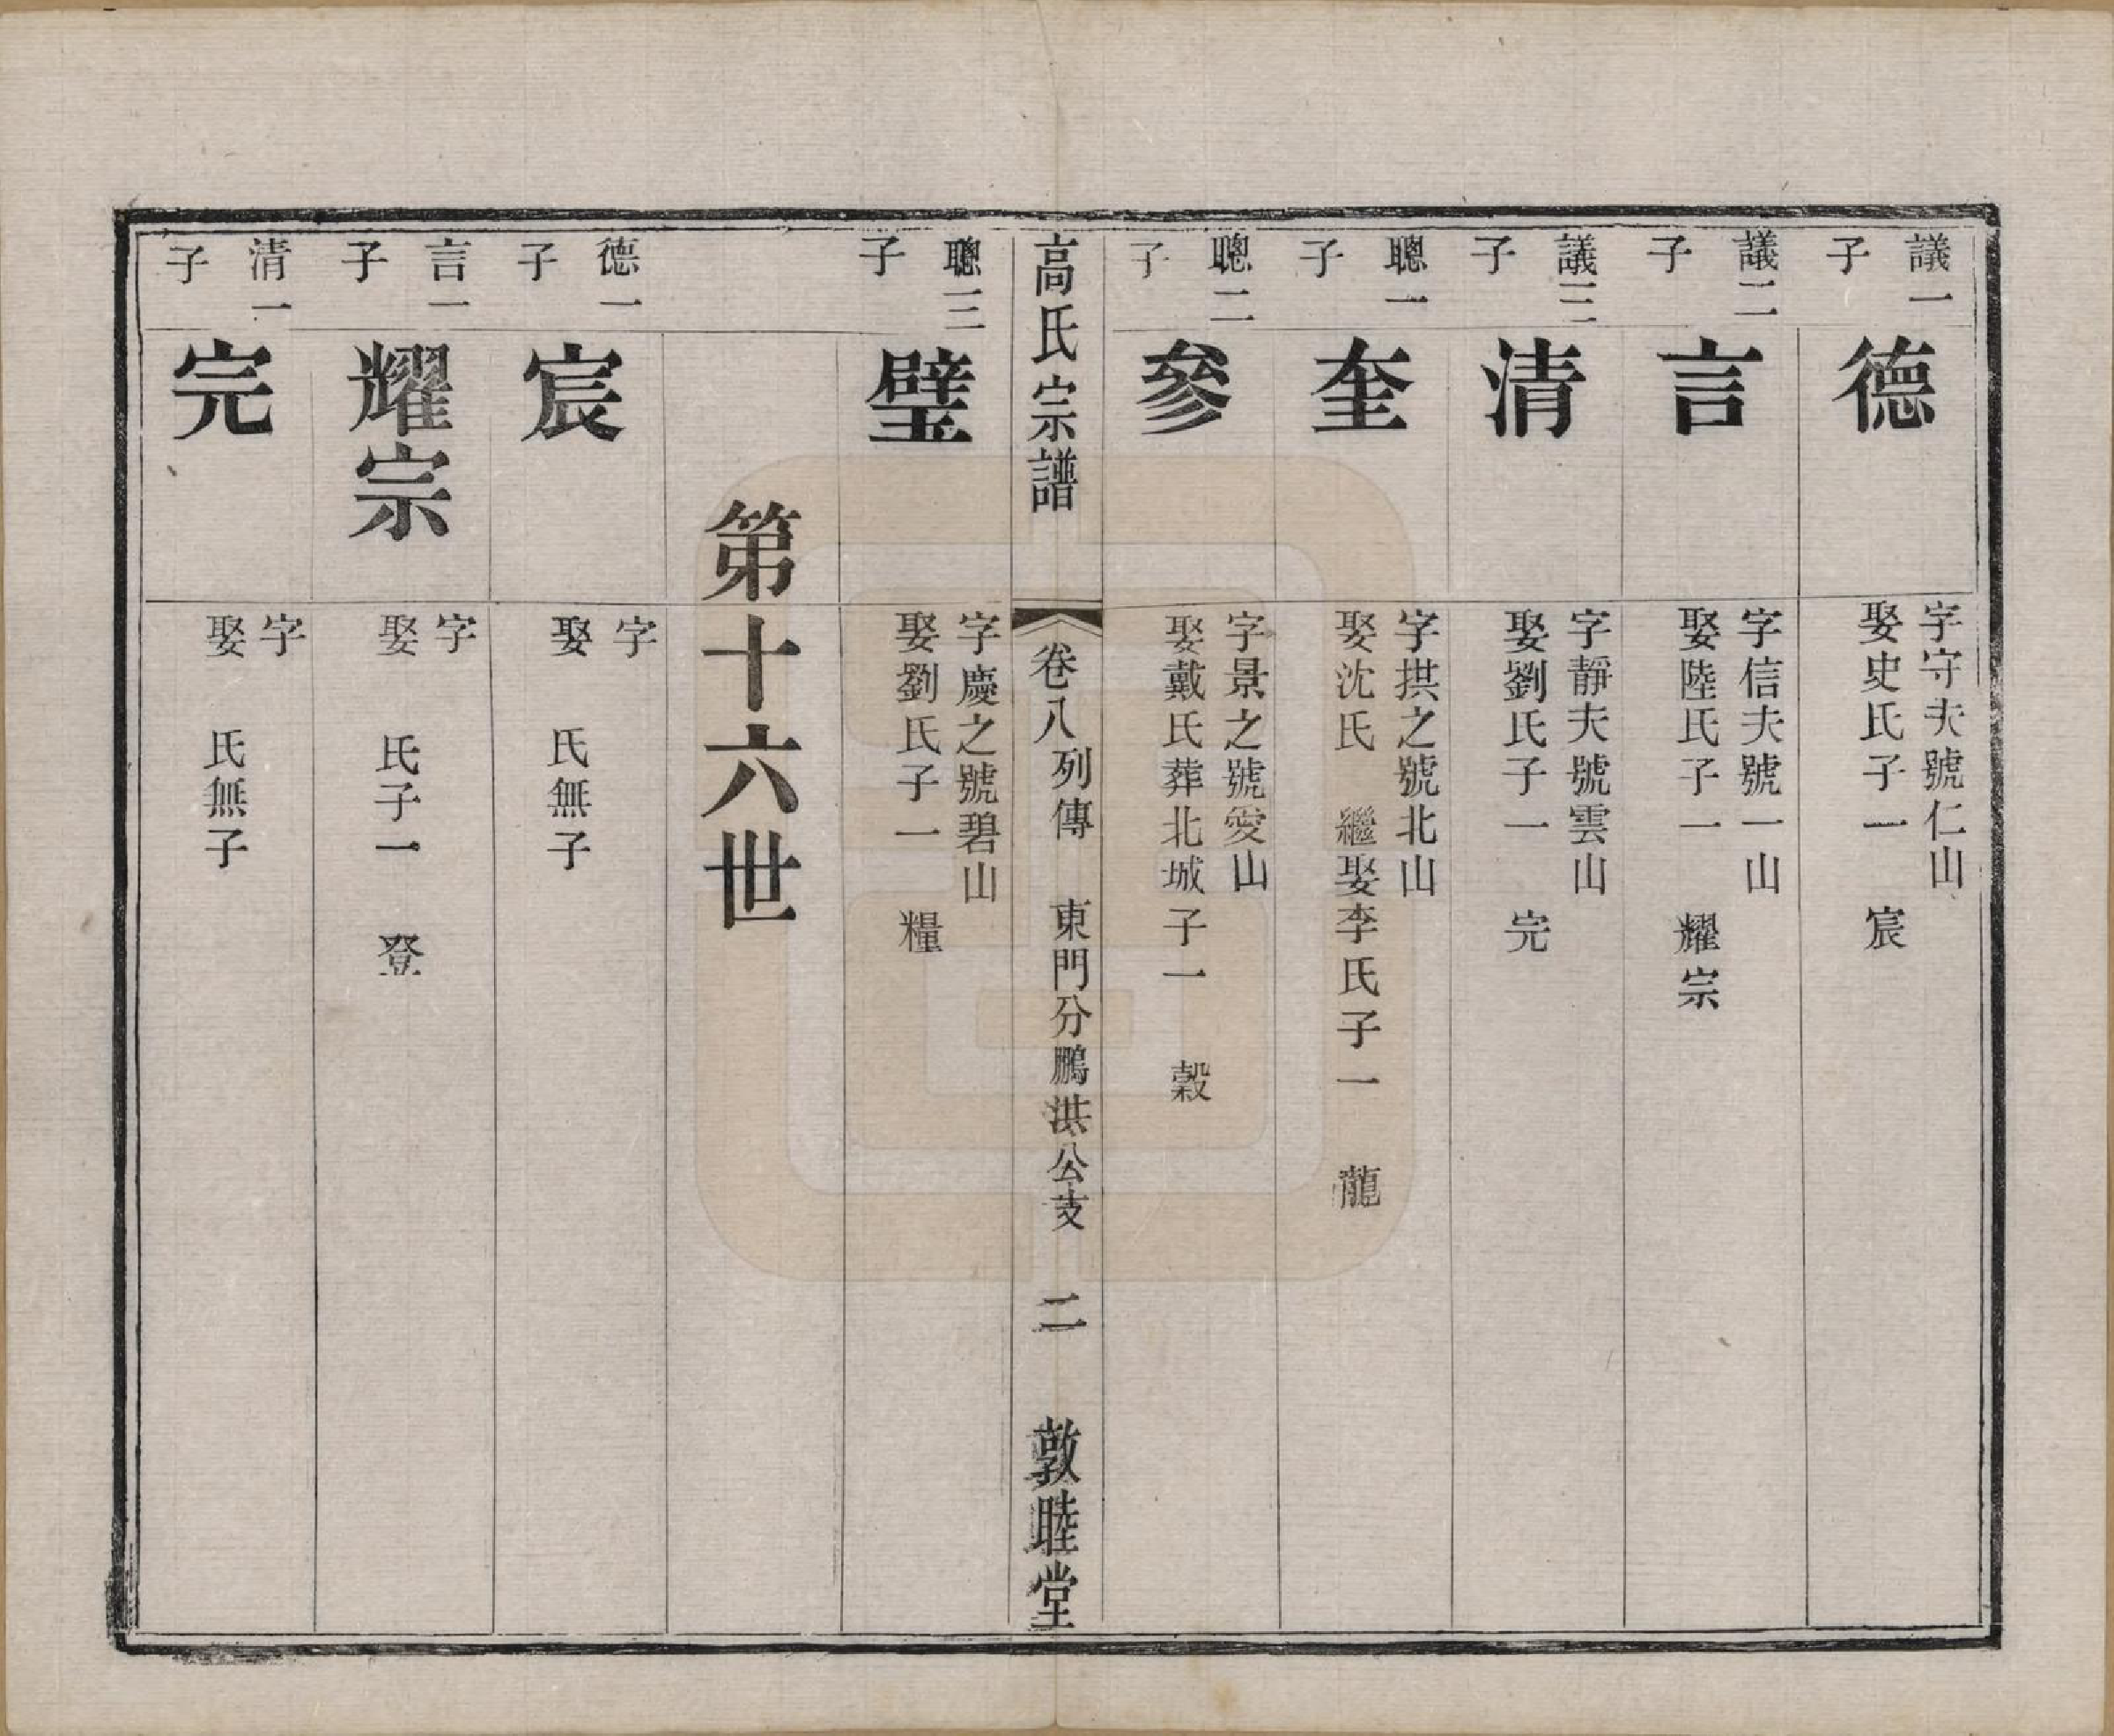 議一
子
德
字守夫號仁山
娶史氏子一　宸
議二
子
言
字信夫號一山
娶陸氏子一　耀宗
議三
子
清
字靜夫號雲山
娶劉氏子一　完
聰一
子
奎
字拱之號北山
娶沈氏　繼娶李氏子一　龍
聰二
子
參
字景之號愛山
娶戴氏葬北城子一　穀
高氏宗譜
卷八列傳　東門分鵬洪公支　二
敦睦堂
聰三
子
璧
字慶之號碧山
娶劉氏子一　糧
第十六世
德一
子
宸
字
娶　氏無子
言一
子
耀宗
字
娶　氏子一　登
清一
子
完
字
娶　氏無子